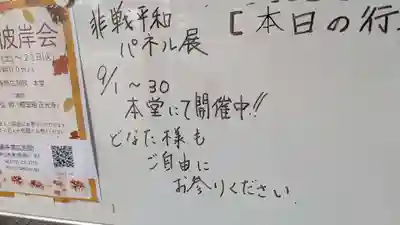 彼岸会
非戦平和
パネル展
9/1〜30
本堂にて開催中!!
どなた様も
ご自由に
お参りください
[本日の行